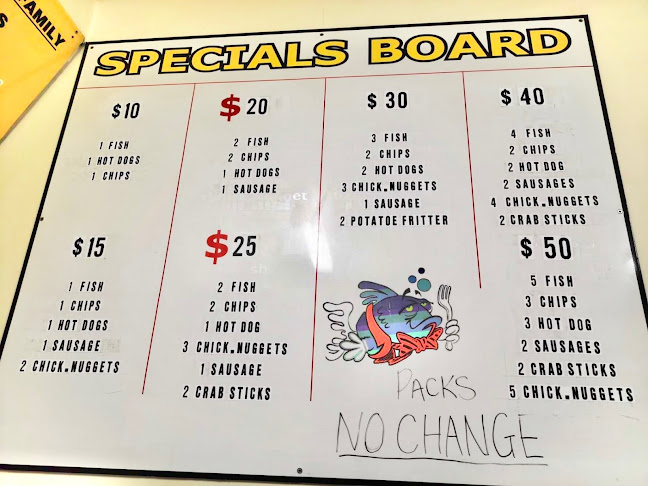 FAMILY
S
SPECIALS BOARD
$10
1 FISH
1 HOT DOGS
1 CHIPS
$20
2 FISH
2 CHIPS
1 HOT DOGS
1 SAUSAGE
$30
3 FISH
2 CHIPS
2 HOT DOGS
3 CHICK.NUGGETS
1 SAUSAGE
2 POTATOE FRITTER
$40
4 FISH
2 CHIPS
2 HOT DOG
2 SAUSAGES
4 CHICK.NUGGETS
2 CRAB STICKS
$15
1 FISH
1 CHIPS
1 HOT DOGS
1 SAUSAGE
2 CHICK.NUGGETS
$25
2 FISH
2 CHIPS
1 HOT DOG
3 CHICK.NUGGETS
1 SAUSAGE
2 CRAB STICKS
$50
5 FISH
3 CHIPS
3 HOT DOG
2 SAUSAGES
2 CRAB STICKS
5 CHICK.NUGGETS
PACKS
NO CHANGE